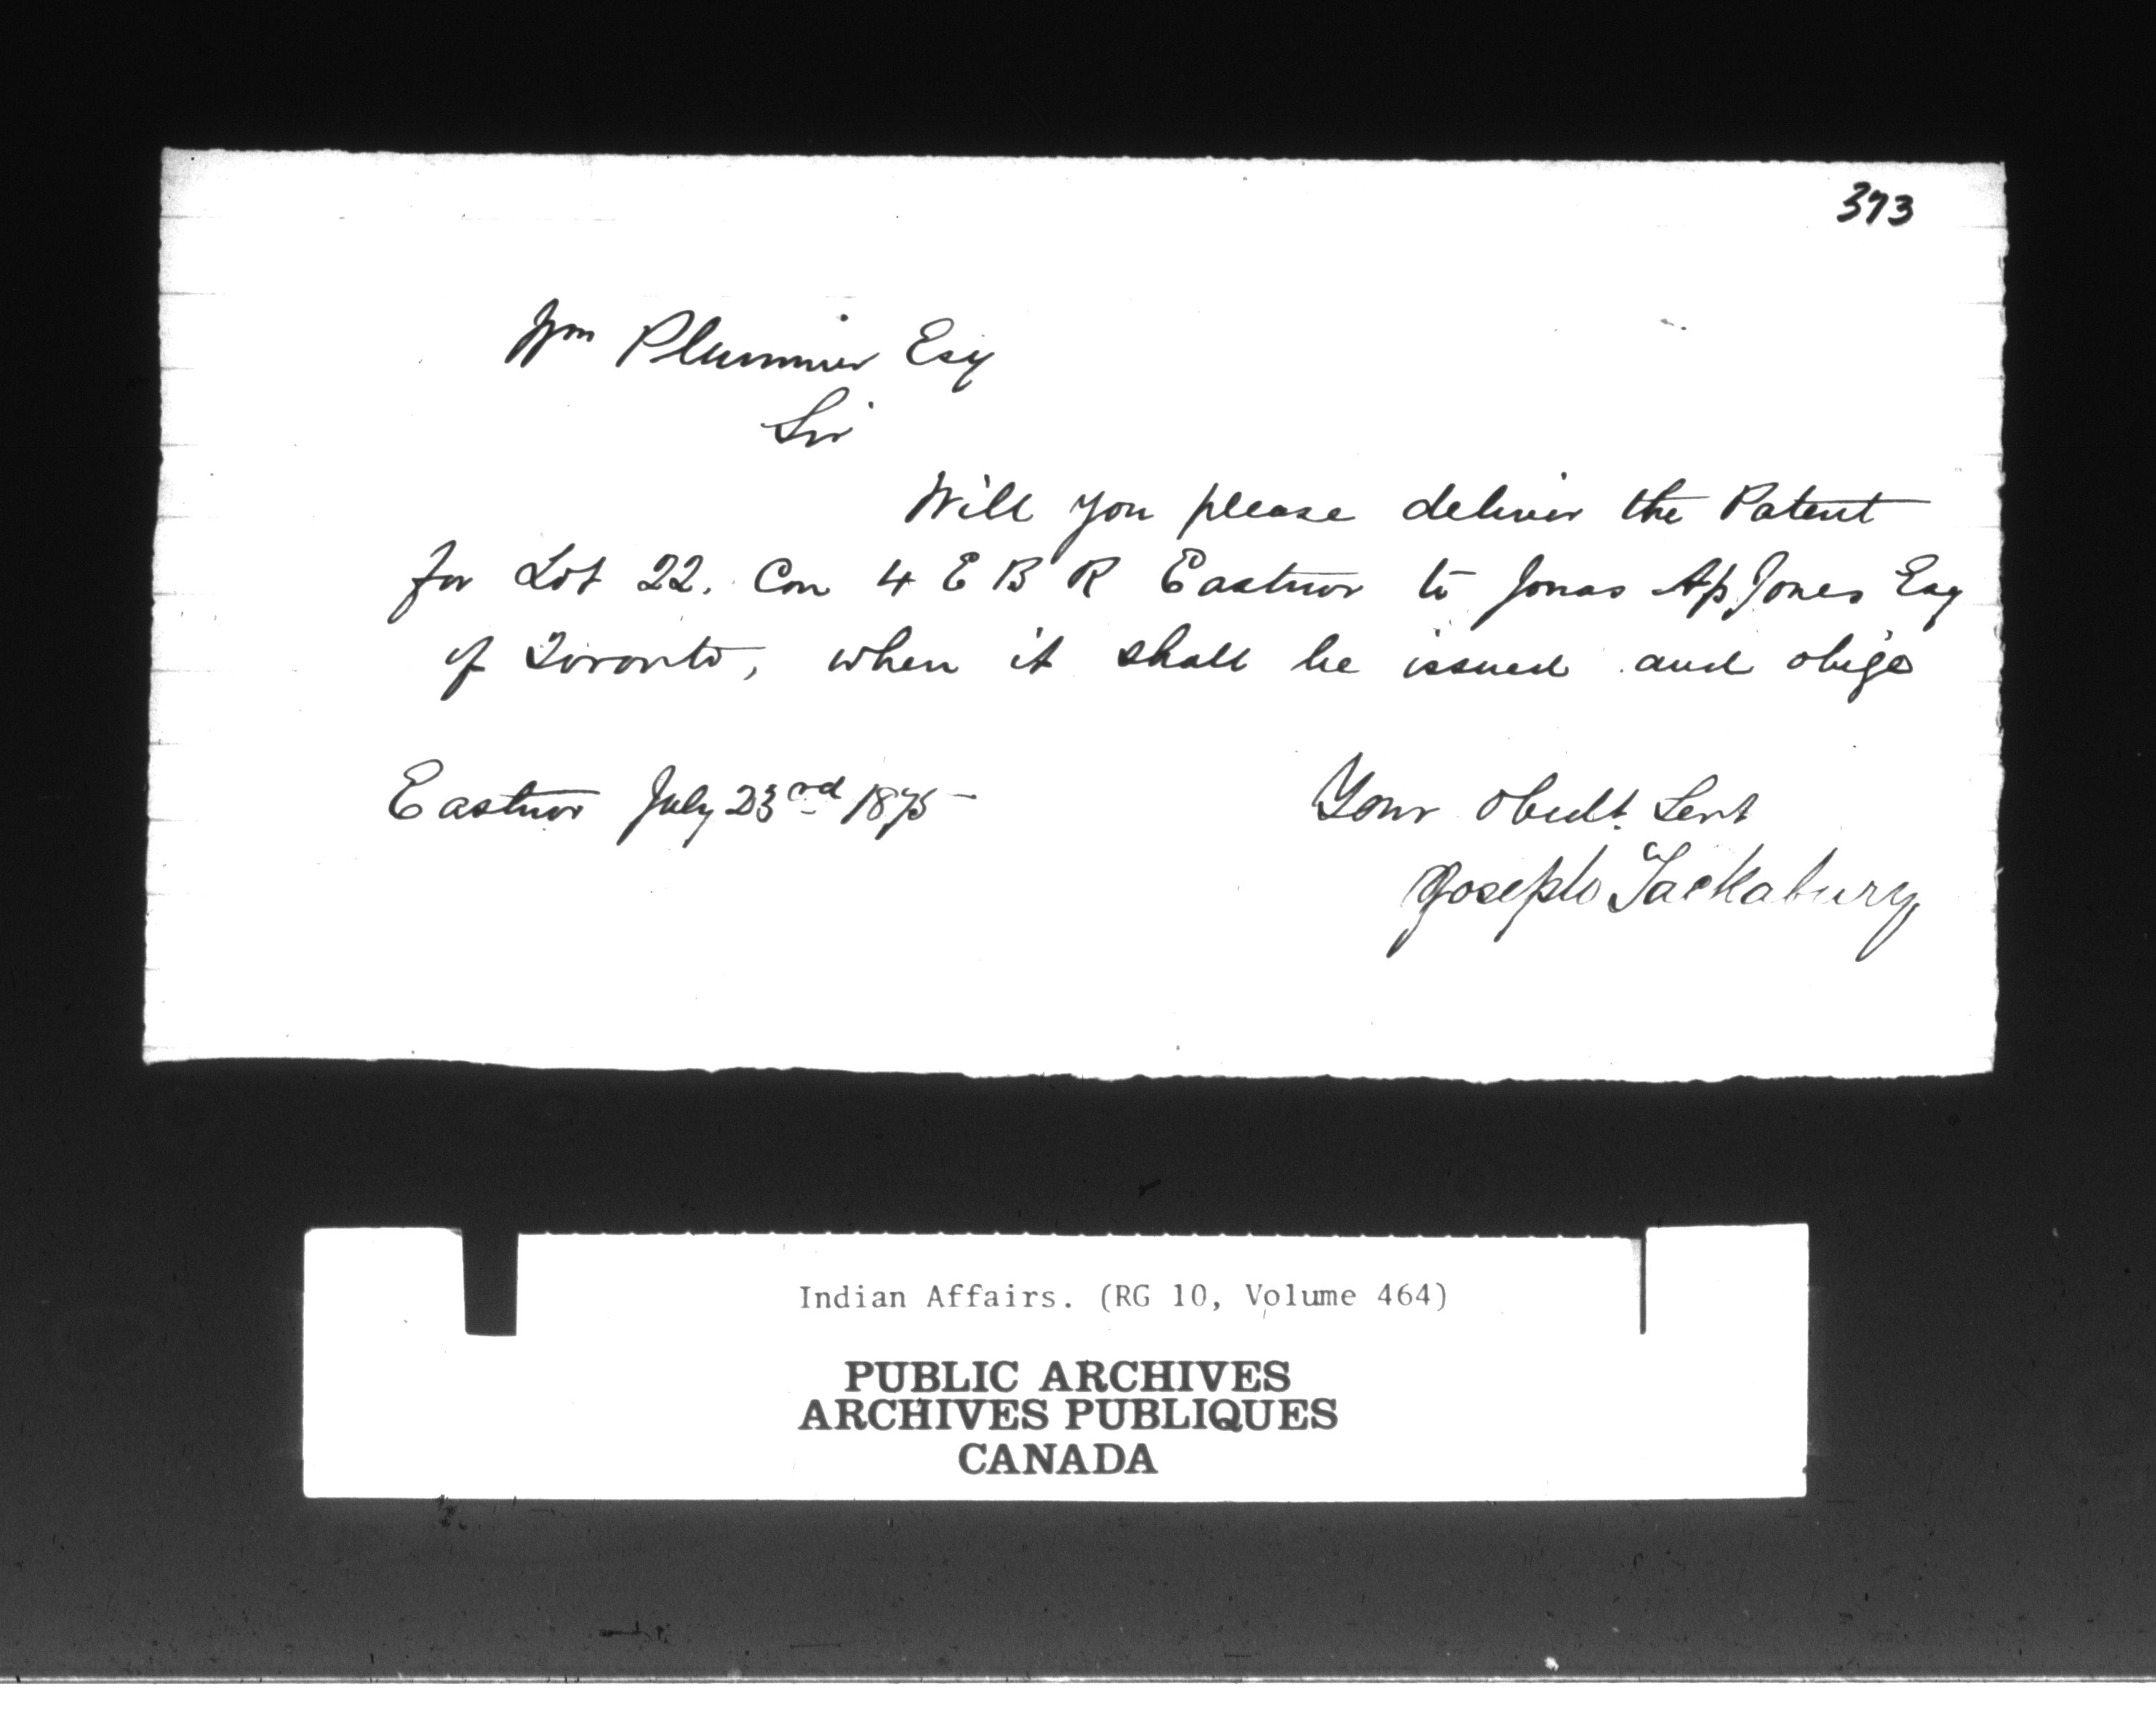 373
Wm Plummer Esq
Sir
Will you please deliver the Patent
for Lot 22. Con 4 E B R Eastnor to Jonas Ap Jones Esq
of Toronto, when it shall be issued and oblige
Eastnor July 23rd 1875 Your Obedt. Servt
Joseph Tackabury
Indian Affairs. (RG 10, Volume 464)
PUBLIC ARCHIVES
ARCHIVES PUBLIQUES
CANADA